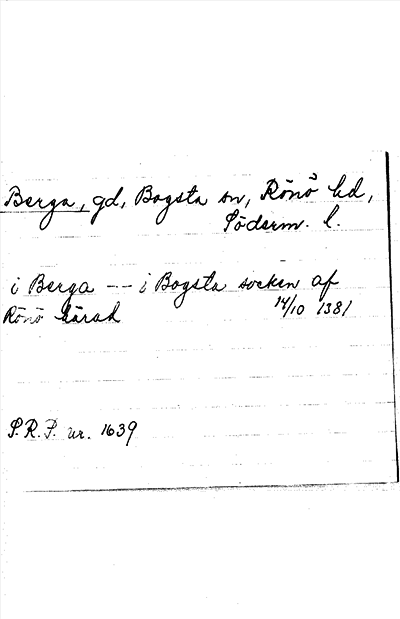 Berga, gd, Bogsta sn, Rönö hd,
Söderm. l.
i Berga -- i Bogsta socken af
Rönö härad 14/10 1381
S.R.P. nr. 1639